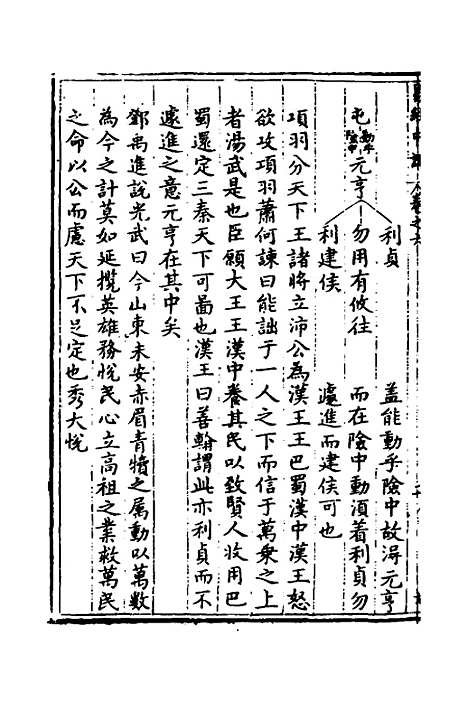 利貞　蓋能動乎險中故得元亨
屯動乎險中元亨　勿用有攸往　而在險中動須着利貞勿
利建侯　遽進而建侯可也
項羽分天下王諸將立沛公為漢王王巴蜀漢中漢王怒
欲攻項羽蕭何諫曰能詘于一人之下而信于萬乗之上
者湯武是也臣願大王王漢中養其民以致賢人收用巴
蜀還定三秦天下可啚也漢王曰善翰謂此亦利貞而不
遽進之意元亨在其中矣
鄧禹進說光武曰今山東未安赤眉青犢之属動以萬數
為今之計莫如延攬英雄務悅民心立高祖之業救萬民
之命以公而慮天下不足定也秀大悅